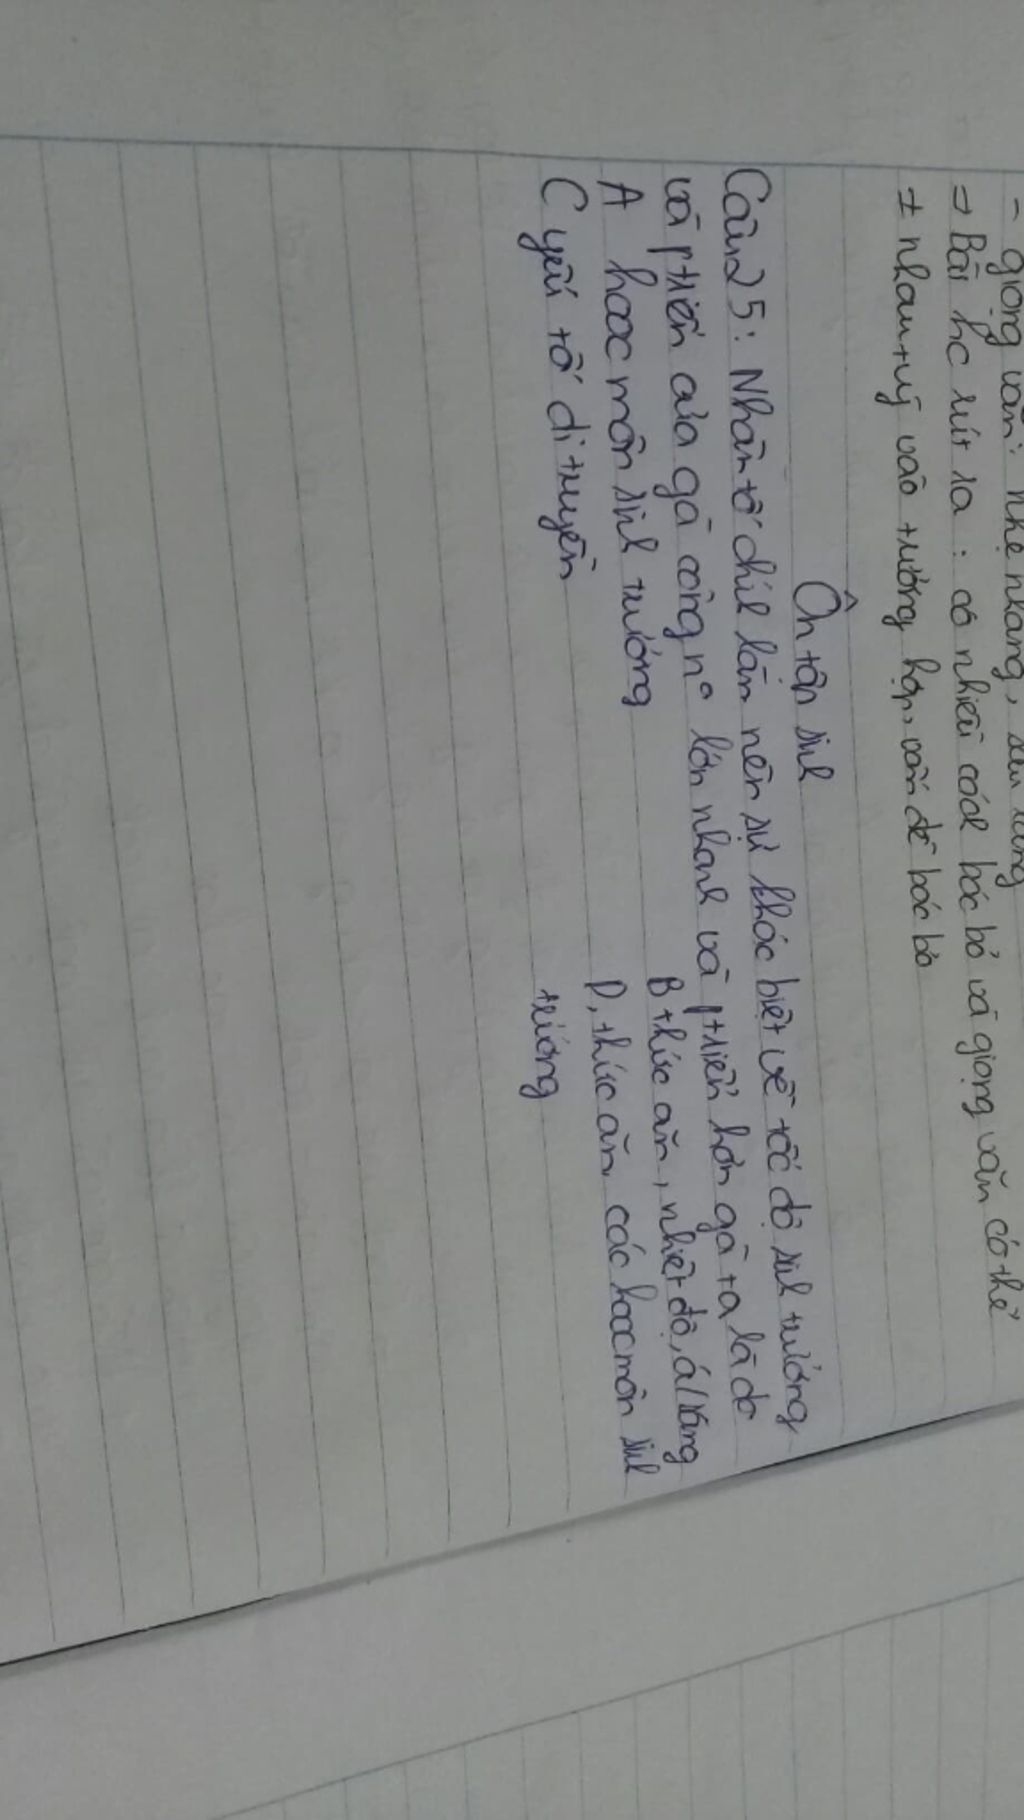 - giọng văn: nhẹ nhàng,
⇒ Bài hc rút ra : có nhiều cách bác bỏ và giọng văn có thể
≠ nhau tuỳ vào trường hợp, vấn đề bác bỏ
Ôn tập sinh
Câu 25: Nhân tố chính làm nên sự khác biệt về tốc độ sinh trưởng
và ptriển của gà công nº lớn nhanh và ptriển hơn gà ta là do
A hoocmôn sinh trưởng B thức ăn, nhiệt độ, á/sáng
C yếu tố di truyền D, thức ăn, các hoocmôn sinh
trưởng